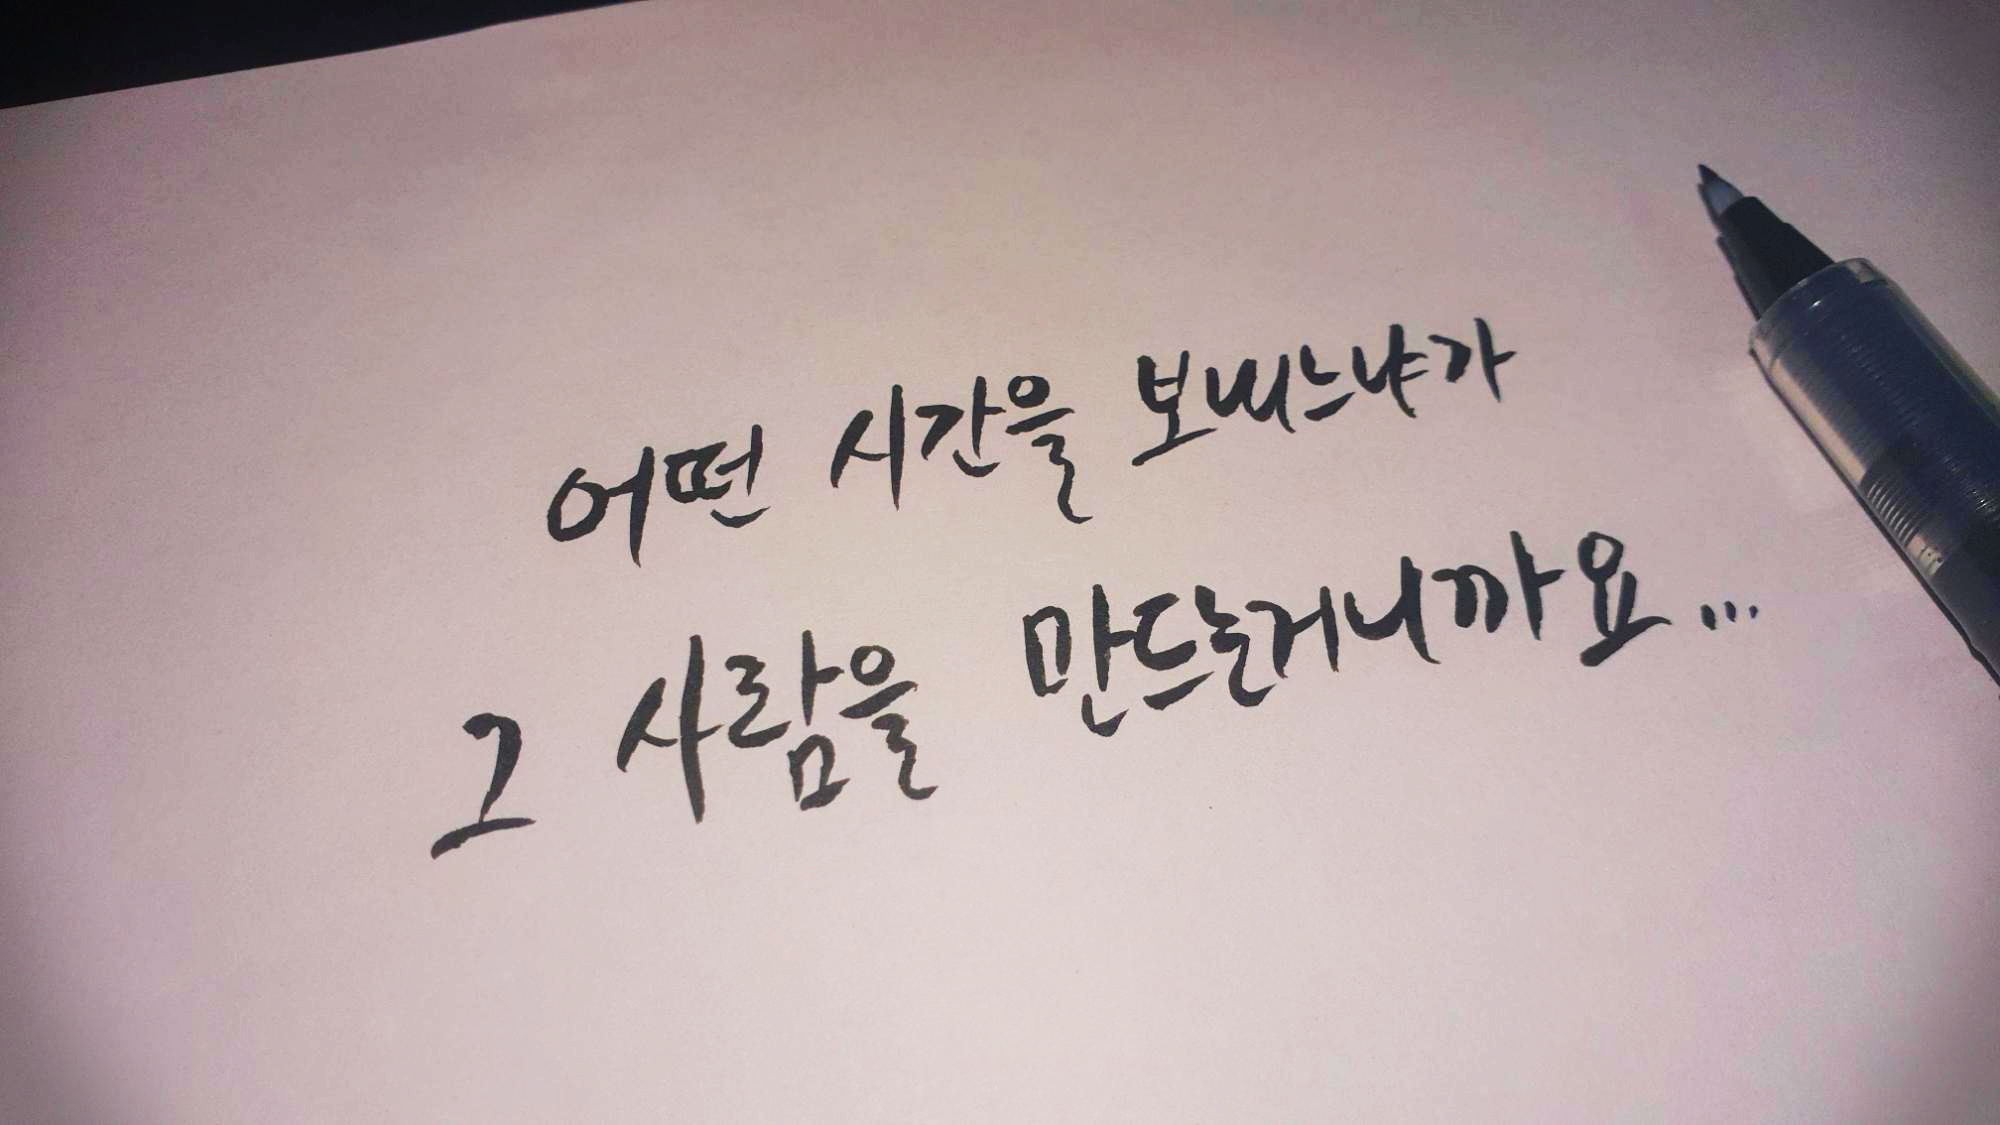 어떤 시간을 보내느냐가
그 사람을 만드는거니까요...